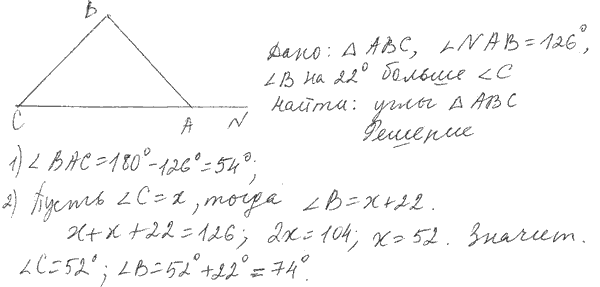 B
Дано: △ ABC, ∠NAB=126°,
∠B на 22° больше ∠C
Найти: углы △ ABC
C A N
Решение
1) ∠BAC=180°-126°=54°;
2) Пусть ∠C=x, тогда ∠B=x+22.
x+x+22=126; 2x=104; x=52. Значит.
∠C=52°; ∠B=52°+22°=74°.